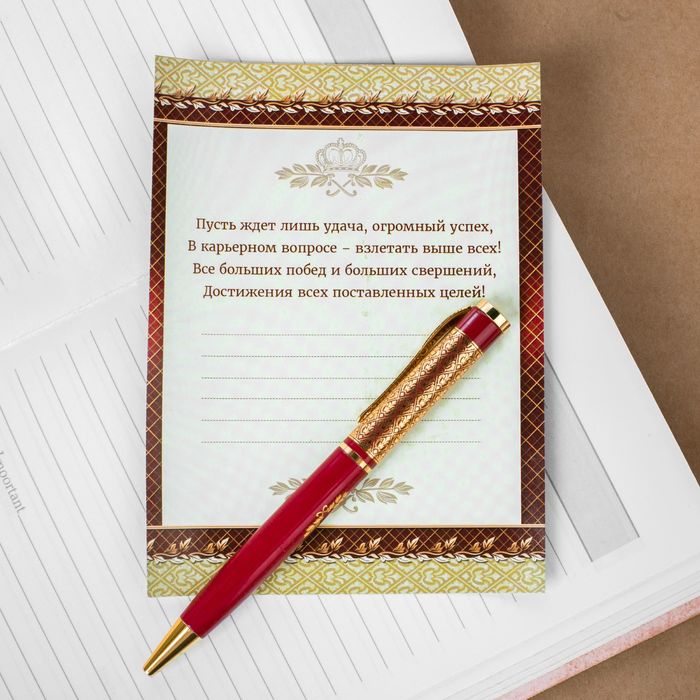 Пусть ждет лишь удача, огромный успех,
В карьерном вопросе – взлетать выше всех!
Все больших побед и больших свершений,
Достижения всех поставленных целей!
Important